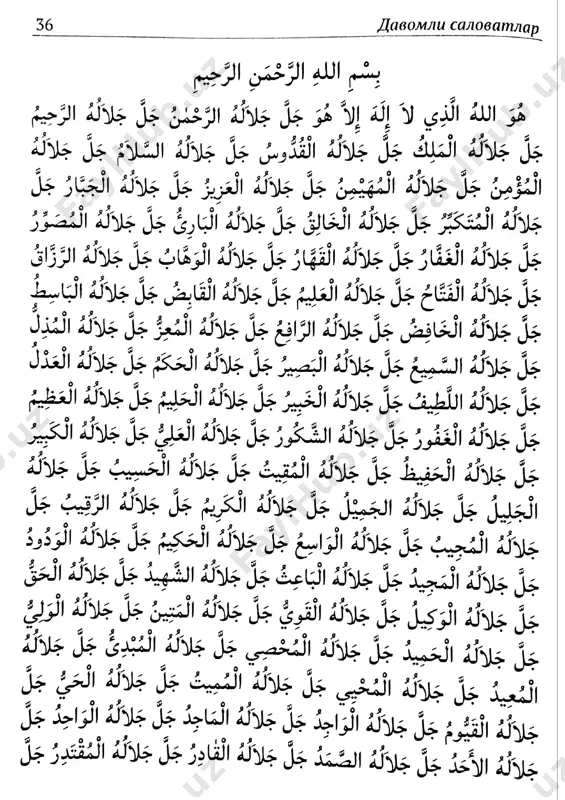 36 Давомли саловатлар
بِسْمِ اللهِ الرَّحْمَنِ الرَّحِيمِ
هُوَ اللهُ الَّذِي لاَ إِلَهَ إِلاَّ هُوَ جَلَّ جَلاَلُهُ الرَّحْمٰنُ جَلَّ جَلاَلُهُ الرَّحِيمُ
جَلَّ جَلاَلُهُ الْمَلِكُ جَلَّ جَلاَلُهُ الْقُدُّوسُ جَلَّ جَلاَلُهُ السَّلاَمُ جَلَّ جَلاَلُهُ
الْمُؤْمِنُ جَلَّ جَلاَلُهُ الْمُهَيْمِنُ جَلَّ جَلاَلُهُ الْعَزِيزُ جَلَّ جَلاَلُهُ الْجَبَّارُ جَلَّ
جَلاَلُهُ الْمُتَكَبِّرُ جَلَّ جَلاَلُهُ الْخَالِقُ جَلَّ جَلاَلُهُ الْبَارِئُ جَلَّ جَلاَلُهُ الْمُصَوِّرُ
جَلَّ جَلاَلُهُ الْغَفَّارُ جَلَّ جَلاَلُهُ الْقَهَّارُ جَلَّ جَلاَلُهُ الْوَهَّابُ جَلَّ جَلاَلُهُ الرَّزَّاقُ
جَلَّ جَلاَلُهُ الْفَتَّاحُ جَلَّ جَلاَلُهُ الْعَلِيمُ جَلَّ جَلاَلُهُ الْقَابِضُ جَلَّ جَلاَلُهُ الْبَاسِطُ
جَلَّ جَلاَلُهُ الْخَافِضُ جَلَّ جَلاَلُهُ الرَّافِعُ جَلَّ جَلاَلُهُ الْمُعِزُّ جَلَّ جَلاَلُهُ الْمُذِلُّ
جَلَّ جَلاَلُهُ السَّمِيعُ جَلَّ جَلاَلُهُ الْبَصِيرُ جَلَّ جَلاَلُهُ الْحَكَمُ جَلَّ جَلاَلُهُ الْعَدْلُ
جَلَّ جَلاَلُهُ اللَّطِيفُ جَلَّ جَلاَلُهُ الْخَبِيرُ جَلَّ جَلاَلُهُ الْحَلِيمُ جَلَّ جَلاَلُهُ الْعَظِيمُ
جَلَّ جَلاَلُهُ الْغَفُورُ جَلَّ جَلاَلُهُ الشَّكُورُ جَلَّ جَلاَلُهُ الْعَلِيُّ جَلَّ جَلاَلُهُ الْكَبِيرُ
جَلَّ جَلاَلُهُ الْحَفِيظُ جَلَّ جَلاَلُهُ الْمُقِيتُ جَلَّ جَلاَلُهُ الْحَسِيبُ جَلَّ جَلاَلُهُ
الْجَلِيلُ جَلَّ جَلاَلُهُ الجَمِيْلُ جَلَّ جَلاَلُهُ الْكَرِيمُ جَلَّ جَلاَلُهُ الرَّقِيبُ جَلَّ
جَلاَلُهُ الْمُجِيبُ جَلَّ جَلاَلُهُ الْوَاسِعُ جَلَّ جَلاَلُهُ الْحَكِيمُ جَلَّ جَلاَلُهُ الْوَدُودُ
جَلَّ جَلاَلُهُ الْمَجِيدُ جَلَّ جَلاَلُهُ الْبَاعِثُ جَلَّ جَلاَلُهُ الشَّهِيدُ جَلَّ جَلاَلُهُ الْحَقُّ
جَلَّ جَلاَلُهُ الْوَكِيلُ جَلَّ جَلاَلُهُ الْقَوِيُّ جَلَّ جَلاَلُهُ الْمَتِينُ جَلَّ جَلاَلُهُ الْوَلِيُّ
جَلَّ جَلاَلُهُ الْحَمِيدُ جَلَّ جَلاَلُهُ الْمُحْصِي جَلَّ جَلاَلُهُ الْمُبْدِئُ جَلَّ جَلاَلُهُ
الْمُعِيدُ جَلَّ جَلاَلُهُ الْمُحْيِي جَلَّ جَلاَلُهُ الْمُمِيتُ جَلَّ جَلاَلُهُ الْحَيُّ جَلَّ
جَلاَلُهُ الْقَيُّومُ جَلَّ جَلاَلُهُ الْوَاجِدُ جَلَّ جَلاَلُهُ الْمَاجِدُ جَلَّ جَلاَلُهُ الْوَاحِدُ جَلَّ
جَلاَلُهُ الأَحَدُ جَلَّ جَلاَلُهُ الصَّمَدُ جَلَّ جَلاَلُهُ الْقَادِرُ جَلَّ جَلاَلُهُ الْمُقْتَدِرُ جَلَّ
FaylHub.uz